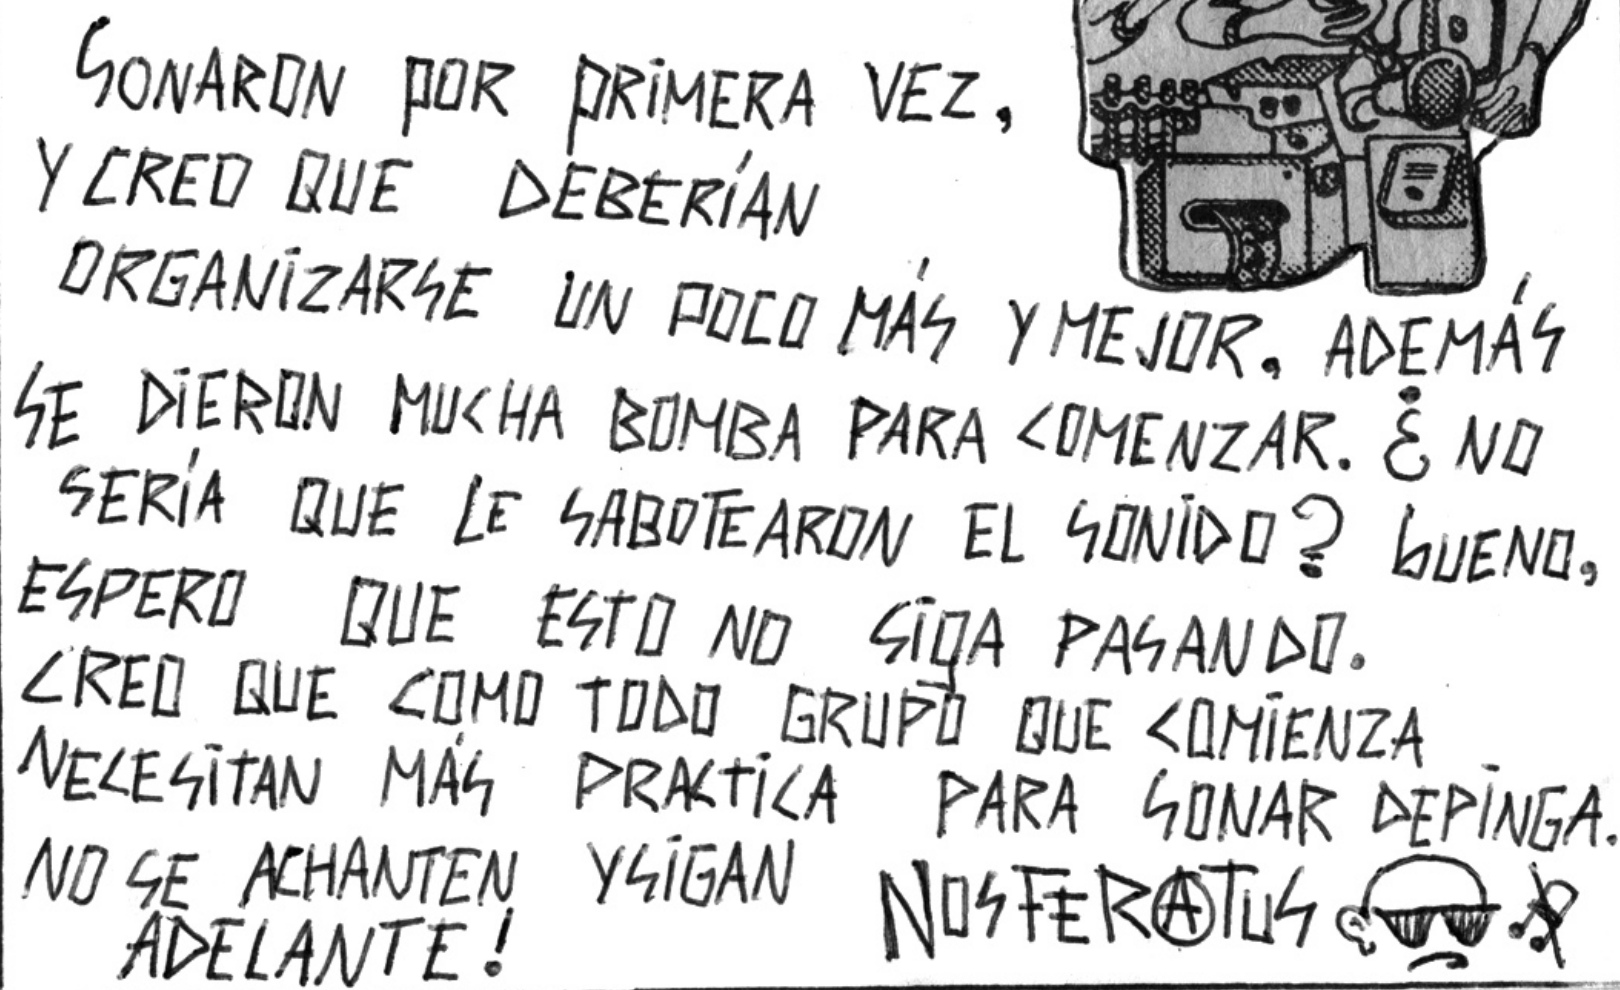 SONARON POR PRIMERA VEZ,
Y CREO QUE DEBERÍAN
ORGANIZARSE UN POCO MÁS Y MEJOR. ADEMÁS
SE DIERON MUCHA BOMBA PARA COMENZAR. ¿NO
SERÍA QUE LE SABOTEARON EL SONIDO? BUENO,
ESPERO QUE ESTO NO SIGA PASANDO.
CREO QUE COMO TODO GRUPO QUE COMIENZA
NECESITAN MÁS PRACTICA PARA SONAR DEPINGA.
NO SE ACHANTEN Y SIGAN
ADELANTE!
NOSFERATUS